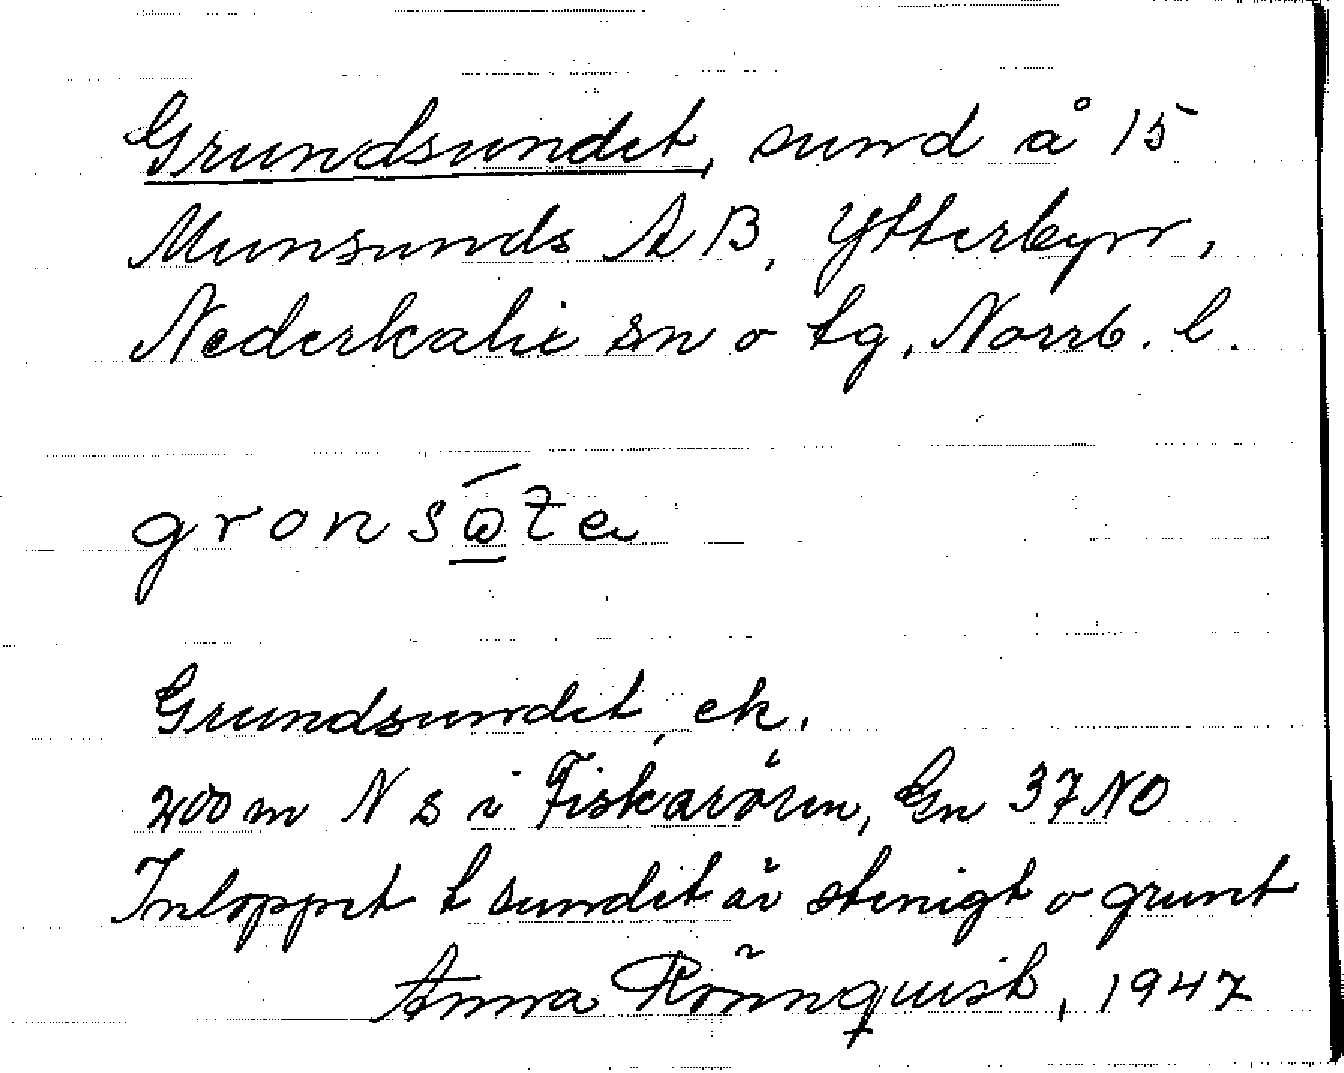 Grundsundet, sund å 15
Munsunds AB, Ytterbyn,
Nederkalix sn o tg, Norrb. l.
Grundsundet, ek.
200 m N S i Fiskarören, Gn 37 NO
Inloppet t sundet är stenigt o grunt
Anna Rönnquist, 1947